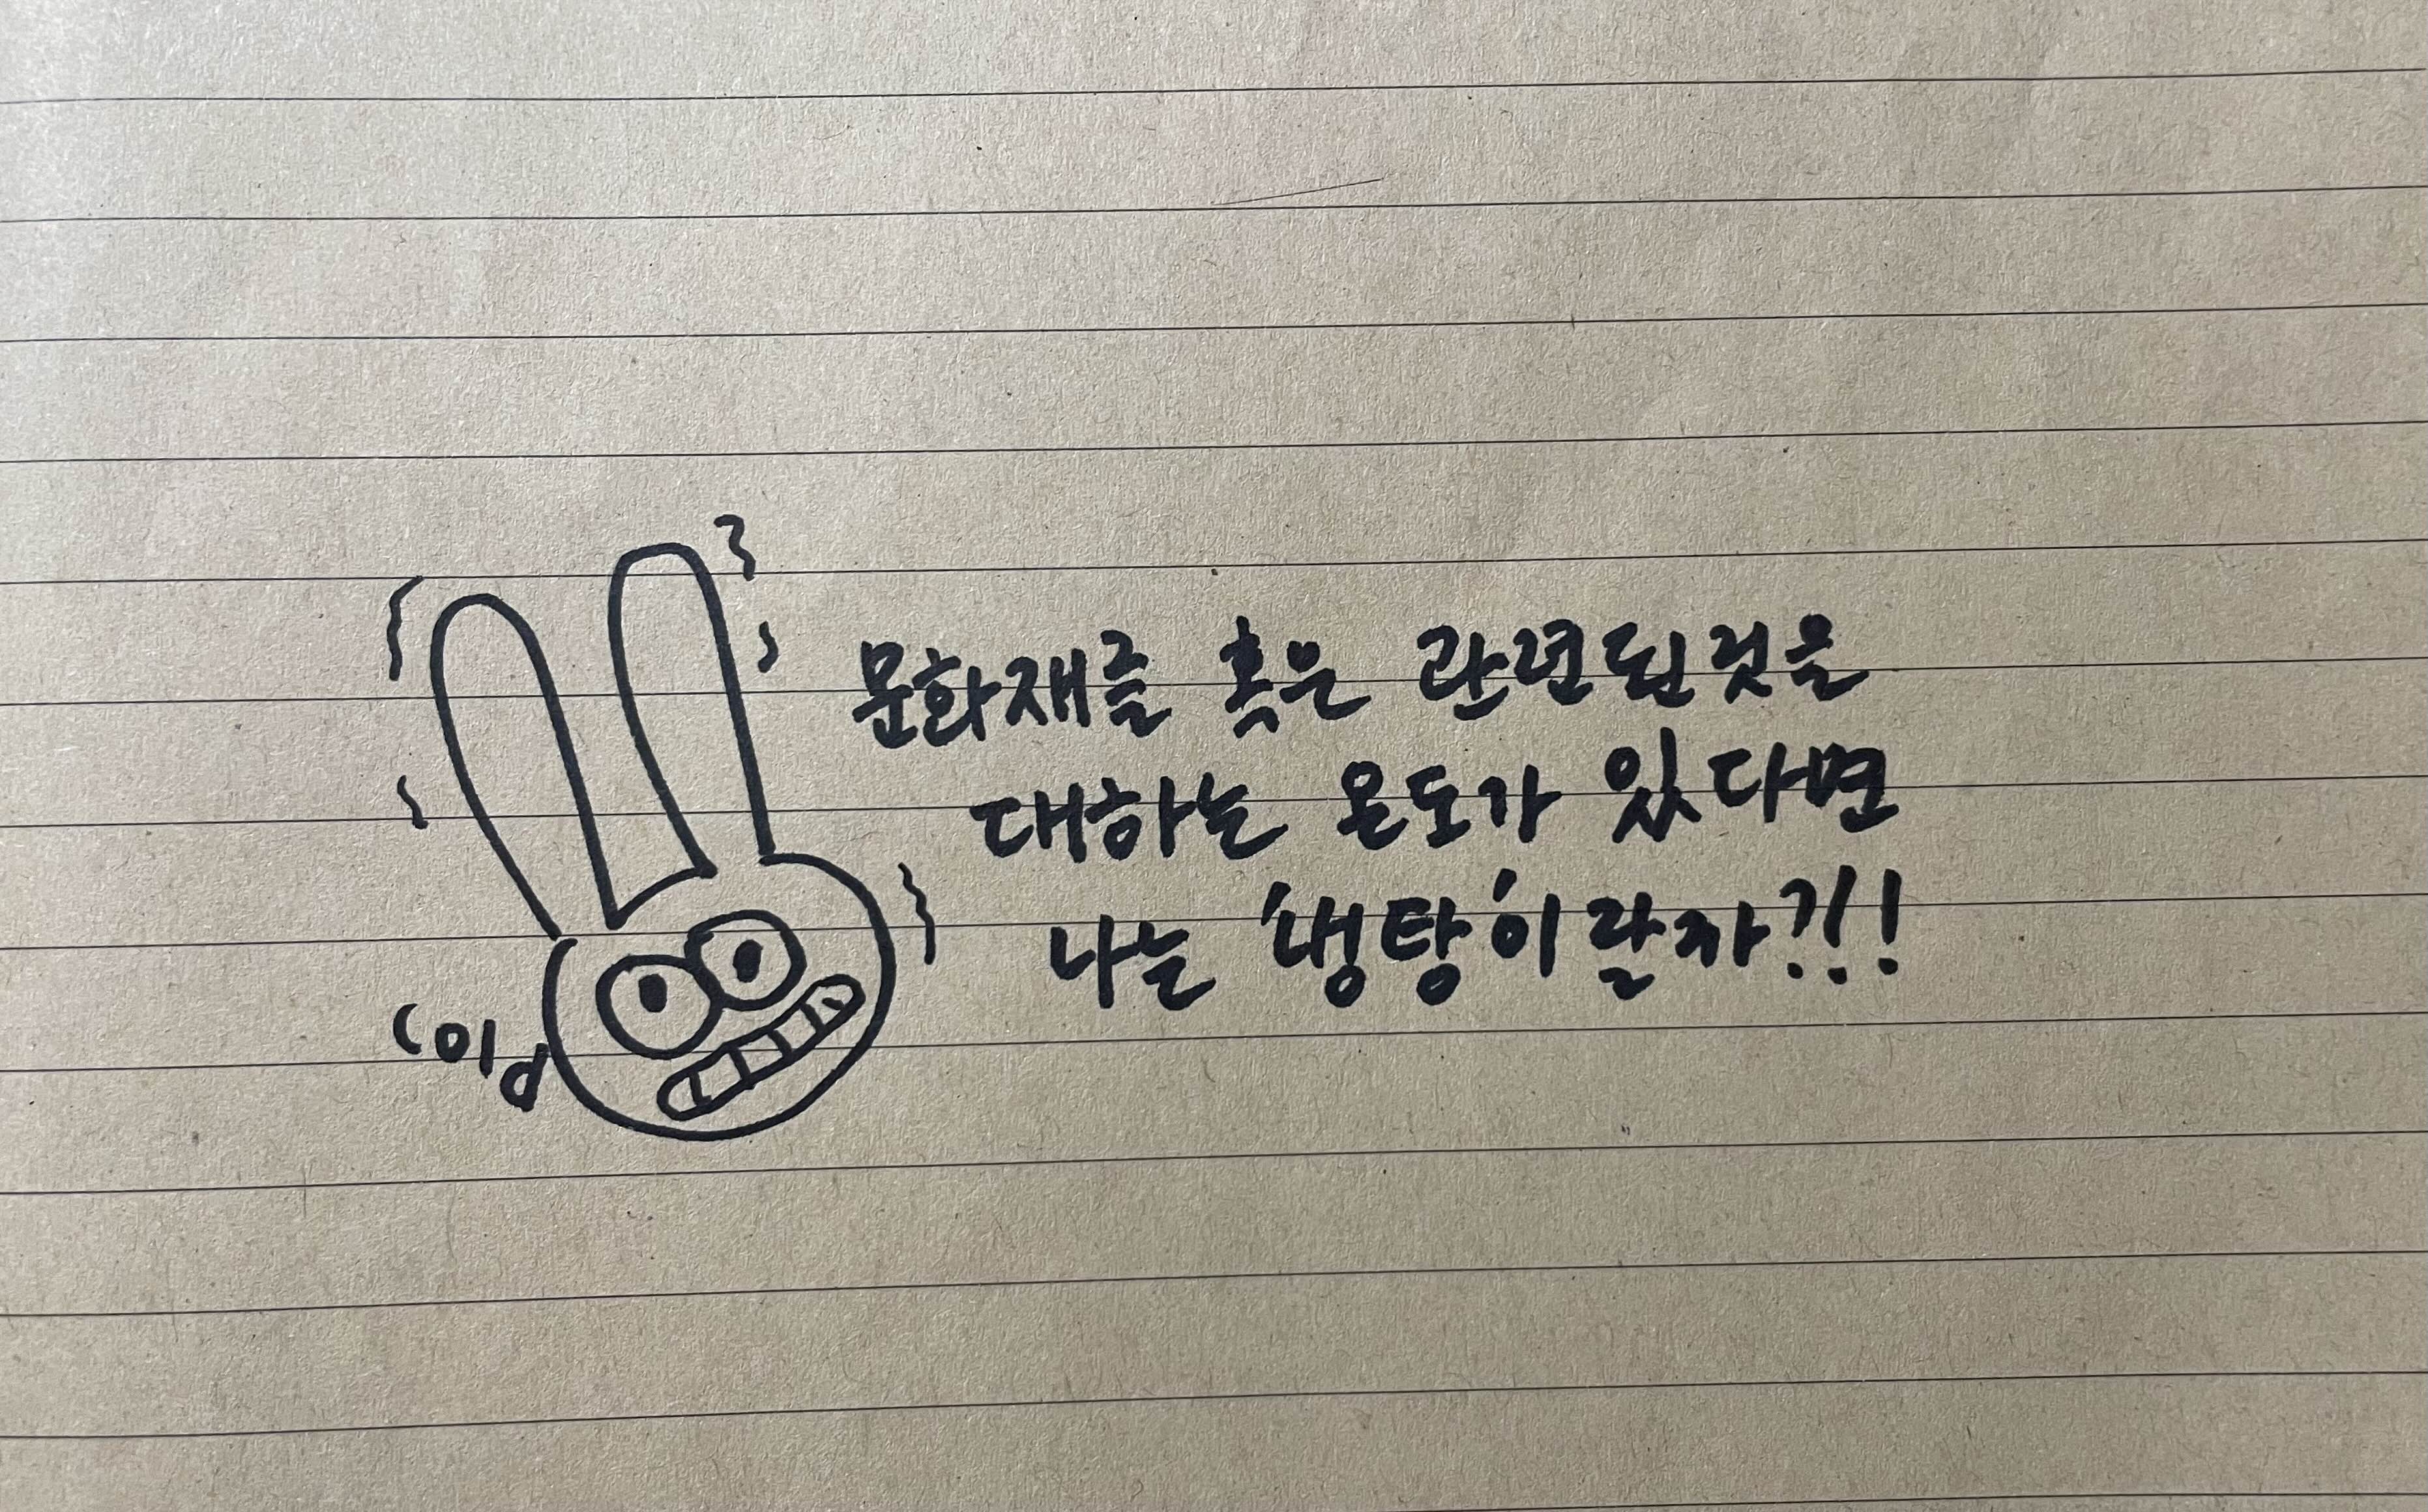 문화재를 혹은 관련된것을
대하는 온도가 있다면
나는 '냉탕'이랄까?!!
cold